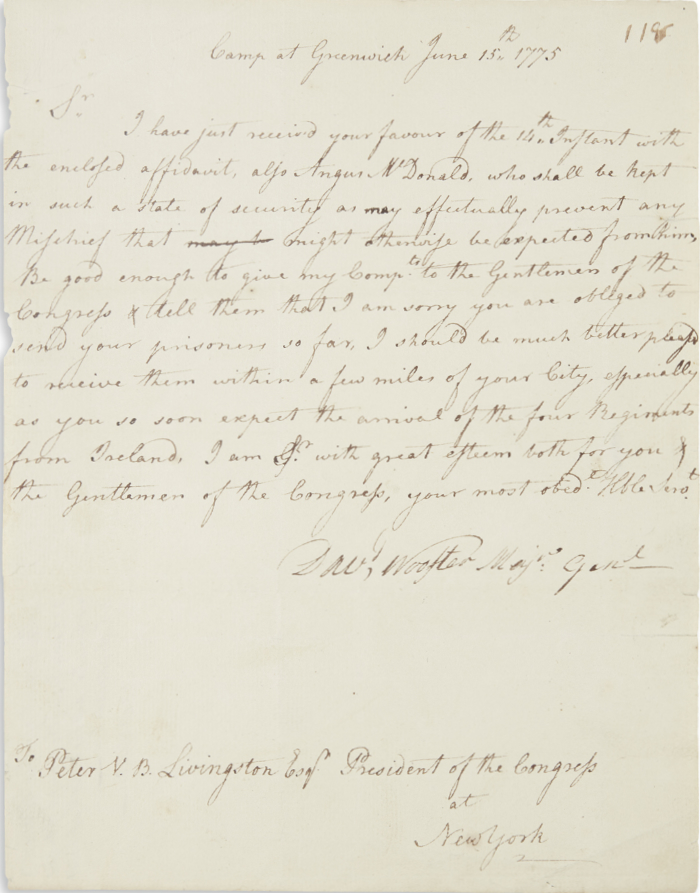 119
Camp at Greenwich June 15th 1775
Sr
I have just receivd your favour of the 14th Instant with
the enclosed affidavit, also Angus McDonald, who shall be kept
in such a state of security as may effectually prevent any
Mischief that may b might otherwise be expected from him,
Be good enough to give my Compts to the Gentlemen of the
Congress & tell them that I am sorry you are obliged to
send your prisoners so far, I should be much better pleasd
to receive them within a few miles of your City, especially
as you so soon expect the arrival of the four Regiments
from Ireland, I am Sr with great esteem both for you &
the Gentlemen of the Congress, your most obedt Hble Servt
Davd Wooster Majr Genl
To Peter V. B. Livingston Esqr President of the Congress
at
New York